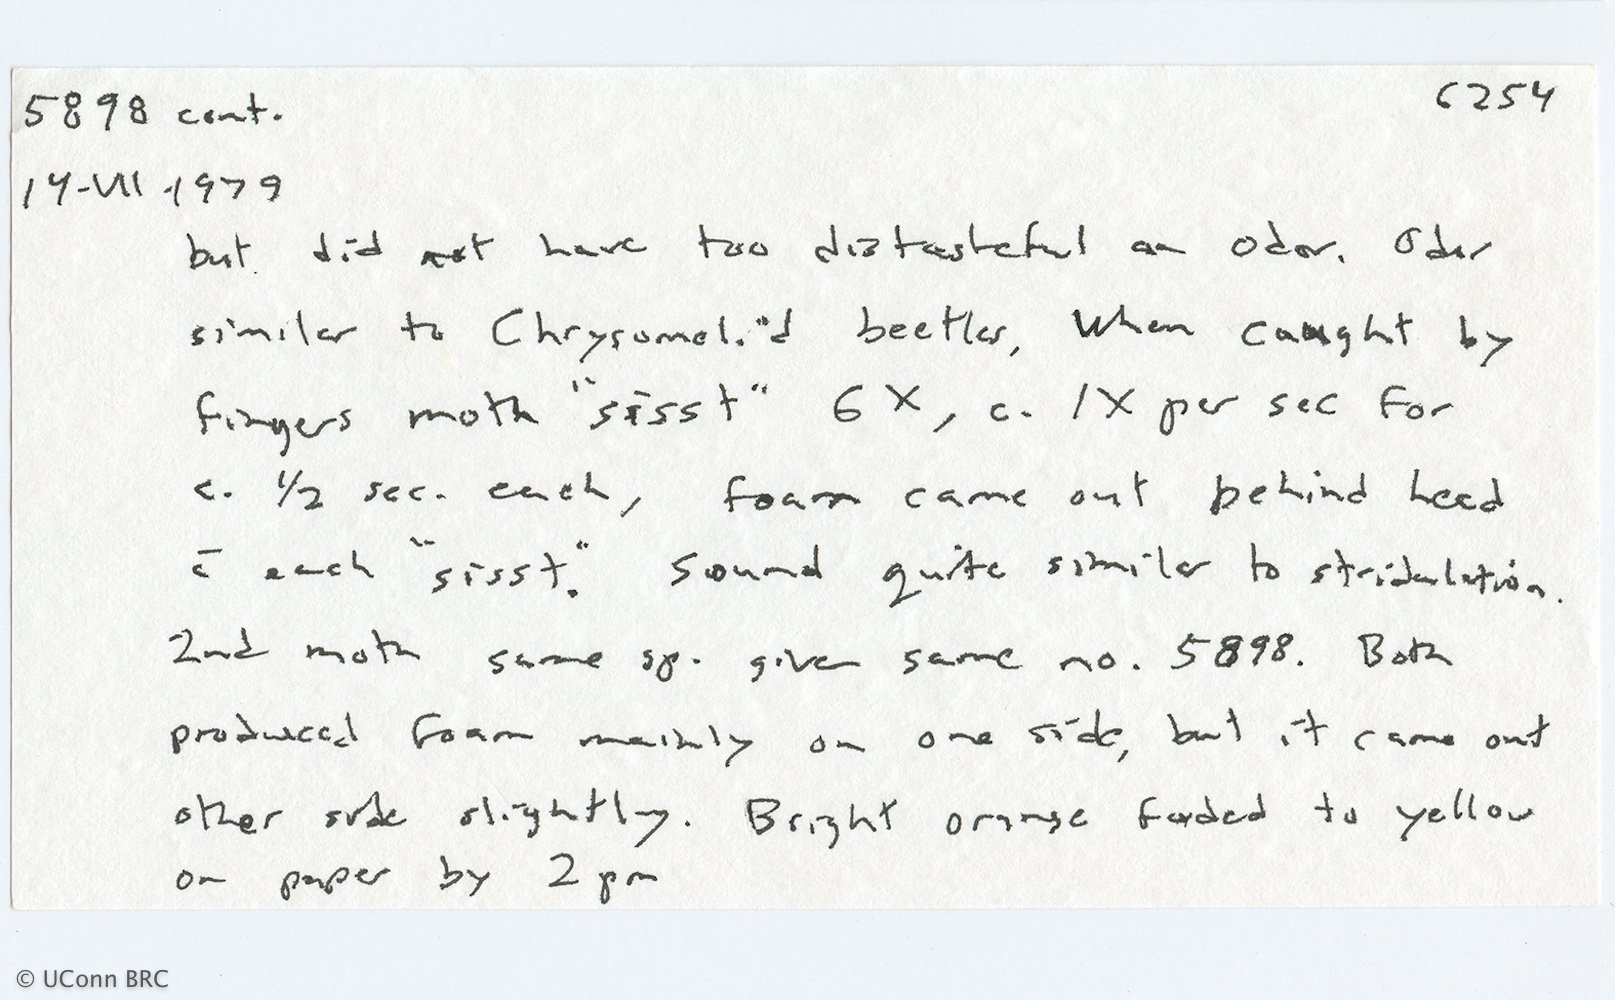 5898 cont.
6254
14-VII-1979
but did not have too distasteful an odor. Odor
similar to Chrysomelid beetles, When caught by
fingers moth "sisst" 6X, c. 1X per sec for
c. 1/2 sec. each, foam came out behind head
c̄ each "sisst." Sound quite similar to stridulation.
2nd moth same sp. given same no. 5898. Both
produced foam mainly on one side, but it came out
other side slightly. Bright orange faded to yellow
on paper by 2 pm
© UConn BRC